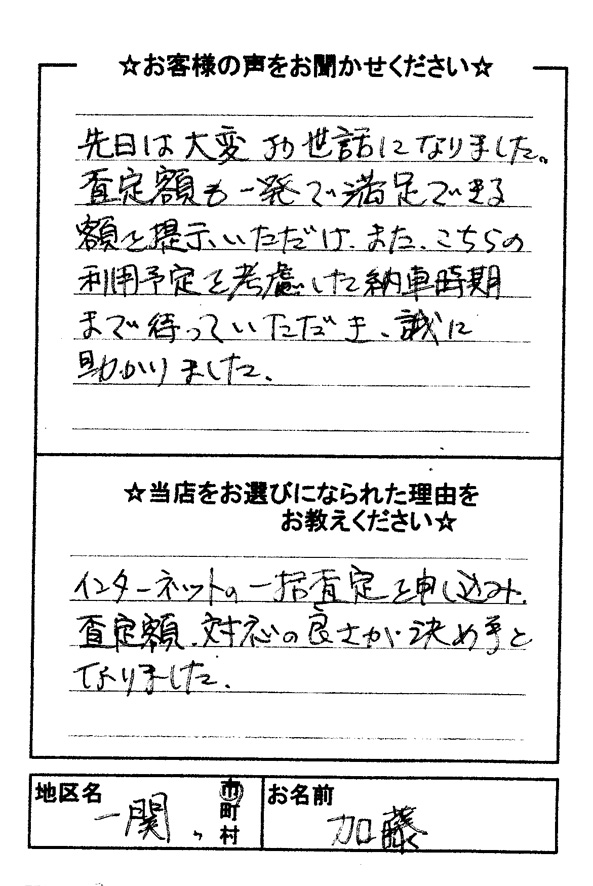 ☆お客様の声をお聞かせください☆
先日は大変お世話になりました。
査定額も一発で満足できる
額を提示いただけ、また、こちらの
利用予定を考慮した納車時期
まで待っていただき、誠に
助かりました。
☆当店をお選びになられた理由を
お教えください☆
インターネットの一括査定を申し込み、
査定額、対応の良さが決め手と
なりました。
地区名
一関
市
町
村
お名前
加藤